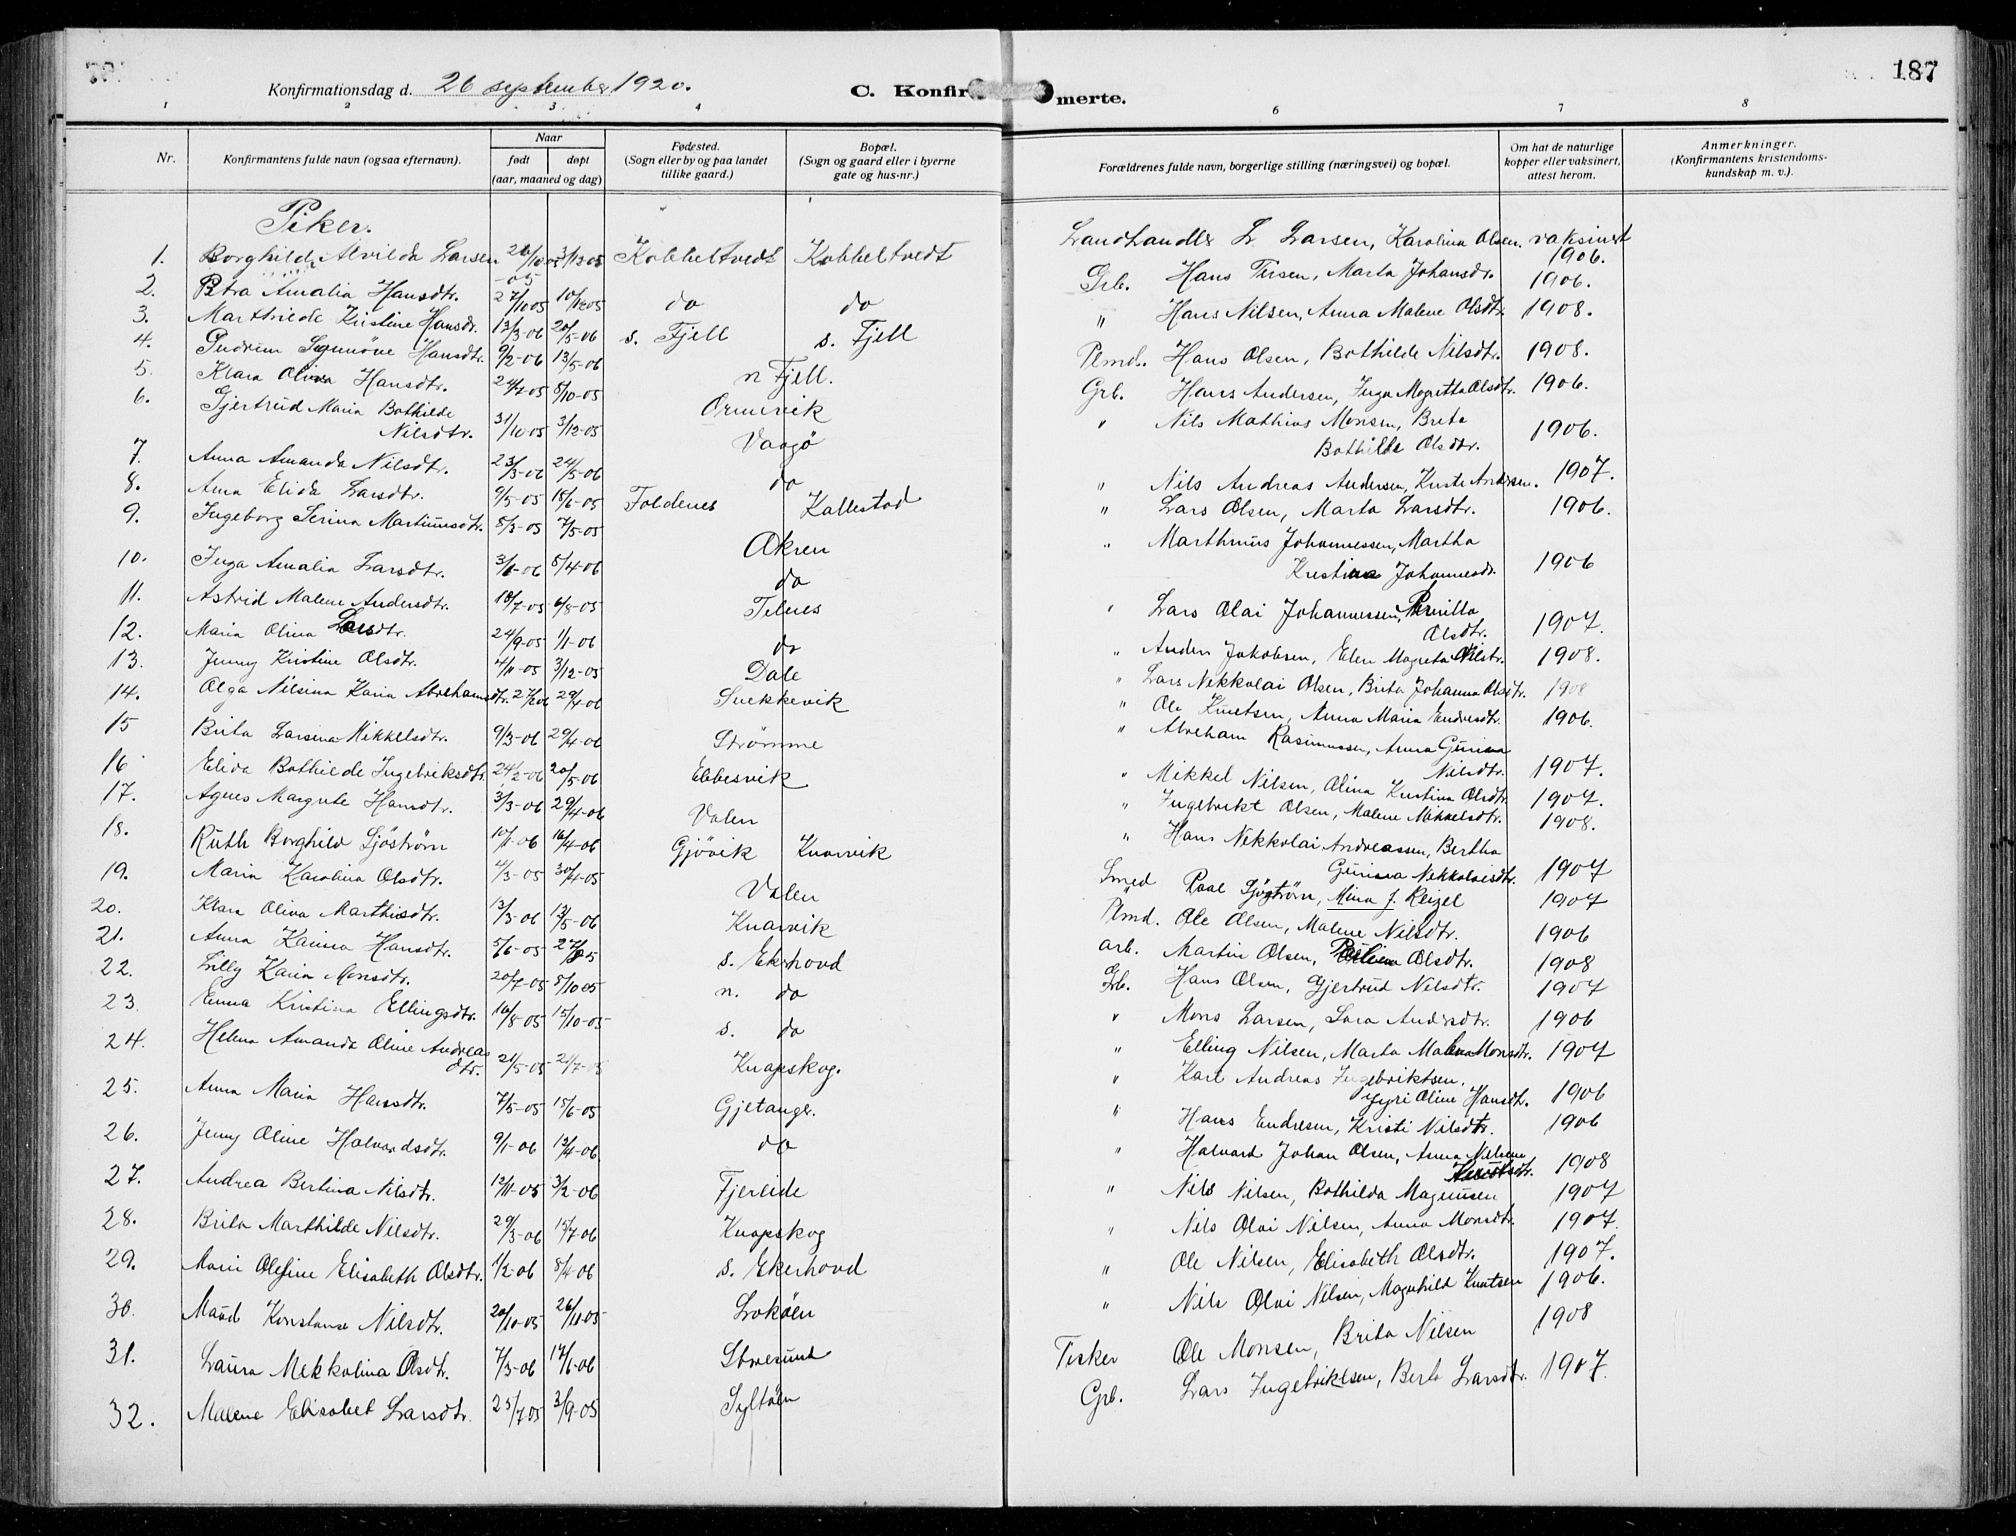 187
Konfirmationsdag d. 26 september 1920.
C. Konfir merte.
1 2 3 4 6 7 8
Nr.
Konfirmantens fulde navn (ogsaa efternavn).
Naar
født døpt
(aar, maaned og dag)
Fødested.
(Sogn eller by og paa landet
tillike gaard.)
Bopæl.
(Sogn og gaard eller i byerne
gate og hus-nr.)
Forældrenes fulde navn, borgerlige stilling (næringsvei) og bopæl.
Om hat de naturlige
kopper eller vaksinert,
attest herom.
Anmerkninger.
(Konfirmantens kristendoms-
kundskap m. v.).
Piker.
1. Borghild Alvilda Larsen 26/10 05 3/12 05 Kobbeltvedt Kobbeltvedt
2. Petra Amalia Hansdtr. 27/10 05 10/12 05 do do
3. Marthilde Kristine Hansdr. 13/3-06 20/5-06 s. Fjell s. Fjell
4. Gudrun Synnöve Hansdtr. 9/2-06 13/5-06
5. Klara Olina Hansdtr. 24/7-05 8/10-05 n Fjell.
6. Gjertrud Maria Bothilde
Nilsdtr. 31/10-05 3/12-05 Ormvik
7. Anna Amanda Nilsdtr. 23/3-06 24/5-06 Vaagö
8. Anna Elida Larsdtr. 9/5-05 18/6-05 do
9. Ingeborg Serina Martinusdtr. 8/3-05 7/5-05 Foldenes Kallestad
10. Inga Amalia Larsdtr. 3/1-06 8/4-06 Akren
11. Astrid Malene Andersdtr. 18/7-05 6/8-05 do
12. Maria Olina Larsdtr. 24/9-05 1/1-06 Telnes
13. Jenny Kristine Olsdtr. 4/11-05 3/12-05 do
14. Olga Nilsina Karia Abrahamsdtr. 27/1 06 29/4-06 Dale
15 Brita Larsina Mikkelsdtr. 9/3-06 29/4-06 Snekkevik
16 Elida Bothilde Ingebriksdtr. 24/2-06 20/5-06 Strømme
17. Agnes Margrete Hansdtr. 3/3-06 29/4-06 Ebbesvik
18. Ruth Borghild Sjöström 10/1-06 16/4-06 Valen
19. Maria Karolina Olsdtr. 4/3-05 30/4-05 Gjövik Knarvik
20. Klara Oliva Marthinsdtr. 13/3-06 13/5-06 Valen
21. Anna Karina Hansdtr. 5/6-05 Knarvik
22. Lilly Karia Monsdtr. 20/7-05 8/10 05 s. Ekerhovd
23. Emma Kristina Ellingsdtr. 16/8-05 15/10-05 n. do
24. Helena Amanda Oline Andreas
dtr. 21/5-05 s. do
25. Anna Maria Hansdtr. 7/5-05 15/6-05 Knapskog.
26. Jenny Oline Halvardsdtr. 9/1-06 13/4-06 Gjetanger.
27. Andrea Bertina Nilsdtr. 12/11-05 3/2-06 do
28. Brita Marthilde Nilsdtr. 29/3-06 15/7-06 Fjereide
29. Marie Olefine Elisabeth Olsdtr. 1/2-06 8/4-06 Knapskog
30. Maud Konstanse Nilsdtr. 20/10-05 26/11 05 s. Ekerhovd
31. Laura Nekkolina Olsdtr. 7/3-06 17/6-06 Lokøen
32. Malene Elisabet Larsdtr. 25/7 05 3/9-05 Skoresund
Syltøen
Landhandler L. Larsen, Karolina Olsen. vaksinert
1906.
Grb. Hans Persen, Marta Johansdr. 1906.
" Hans Nilsen, Anna Malene Olsdtr. 1908.
Plmd. Hans Olsen, Bothilde Nilsdtr. 1908.
Grb. Hans Andersen, Inga Magretta Olsdtr. 1906.
" Nils Mathias Monsen, Breta
Bothilde Olsdtr. 1906.
" Nils Andreas Andersen, Kirste Andersen. 1907.
" Lars Olsen, Marta Larsdtr. 1906.
" Marthinus Johannessen, Martha
Kristina Johannesdr. 1906
" Lars Olai Johannessen, Pernilla
Olsdtr. 1907.
" Anders Jakobsen, Elen Magreta Nilsdtr. 1908.
" Lars Nekkolai Olsen, Brita Johanna Olsdtr. 1908
" Ole Knutsen, Anna Maria Endresdtr. 1906.
" Abraham Rasmussen, Anna Gurina
Nilsdtr. 1907.
" Mikkel Nilsen, Olina Kristina Olsdtr. 1907.
" Ingebrikt Olsen, Malene Mikkelsdtr. 1908.
" Hans Nekkolai Andreassen, Bertha
Gurina Nekkolaisdtr. 1907
Smed Paal Sjöström, Mina J. Reigel 1907
Plmd. Ole Olsen, Malene Nilsdtr. 1906
arb. Martin Olsen, Olsdtr. 1908
Grb. Hans Olsen, Gjertrud Nilsdtr. 1907
" Mons Larsen, Sara Andersdtr. 1906
" Elling Nilsen, Marta Malena Monsdtr. 1907
" Karl Andreas Ingebriktsen,
Syri Oline Hansdtr. 1906
" Hans Endresen, Kristi Nilsdtr. 1906
" Halvard Johan Olsen, Anna Nilsine
Knutsdtr. 1908
" Nils Nilsen, Bothilda Magnusen 1907
" Nils Olai Nilsen, Anna Monsdtr. 1907.
" Ole Nilsen, Elisabeth Olsdtr. 1907.
" Nils Olai Nilsen, Magnhild Knutsen 1906.
Fisker Ole Monsen, Brita Nilsen 1908
Grb. Lars Ingebriktsen, Berta Larsdtr. 1907.